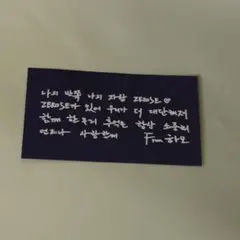 나의 반쪽 나의 자랑 ZEROSE ♡
ZEROSE가 있어 우리가 더 대단해져
함께 한 우리 추억은 항상 소중해
언제나 사랑한해 From 하오